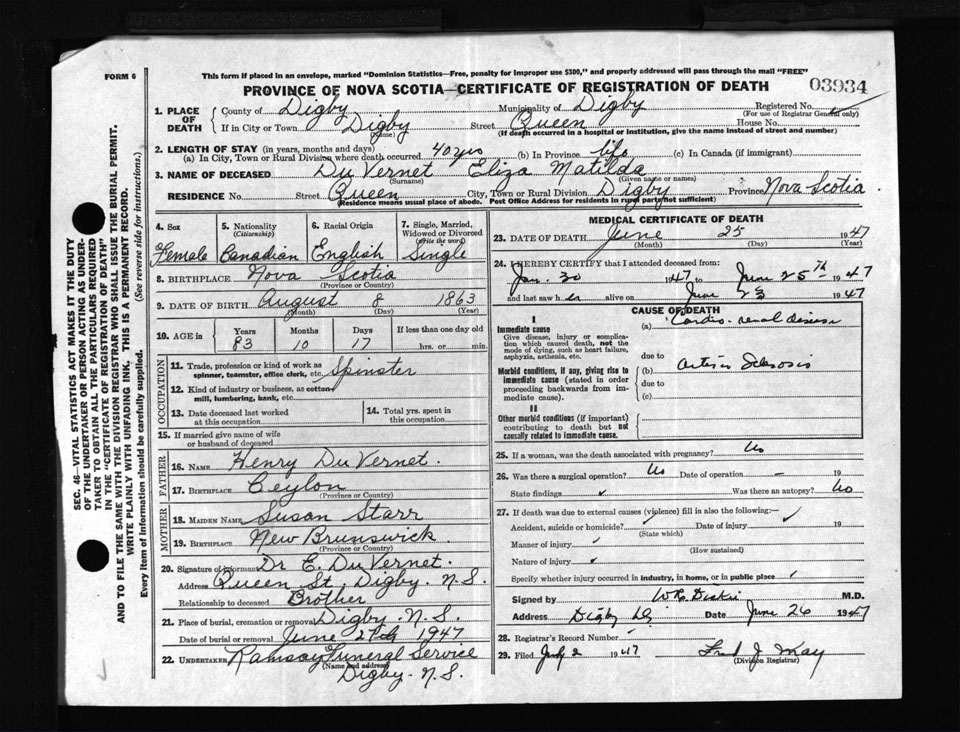 FORM 6
This form if placed in an envelope, marked "Dominion Statistics—Free, penalty for improper use $300," and properly addressed will pass through the mail "FREE"
PROVINCE OF NOVA SCOTIA—CERTIFICATE OF REGISTRATION OF DEATH
03934
1. PLACE OF DEATH { County of Digby Municipality of Digby Registered No.
(For use of Registrar General only)
If in City or Town Digby Street Queen House No.
(Name) (If death occurred in a hospital or institution, give the name instead of street and number)
2. LENGTH OF STAY (in years, months and days)
(a) In City, Town or Rural Division where death occurred 40 yrs (b) In Province life (c) In Canada (if immigrant)
3. NAME OF DECEASED Du Vernet Eliza Matilda
(Surname) (Given name or names)
RESIDENCE No. Street Queen City, Town or Rural Division Digby Province Nova Scotia
(Residence means usual place of abode. Post Office Address for residents in rural parts not sufficient)
4. Sex 5. Nationality (Citizenship) 6. Racial Origin 7. Single, Married, Widowed or Divorced (Write the word)
Female Canadian English Single
8. BIRTHPLACE Nova Scotia
(Province or Country)
9. DATE OF BIRTH August 8 1863
(Month) (Day) (Year)
10. AGE in { Years Months Days If less than one day old
83 10 17 hrs. or min.
OCCUPATION
11. Trade, profession or kind of work as spinner, teamster, office clerk, etc. Spinster
12. Kind of industry or business, as cotton mill, lumbering, bank, etc.
13. Date deceased last worked at this occupation
14. Total yrs. spent in this occupation
15. If married give name of wife or husband of deceased
FATHER
16. NAME Henry Du Vernet.
17. BIRTHPLACE Ceylon
(Province or Country)
MOTHER
18. MAIDEN NAME Susan Starr
19. BIRTHPLACE New Brunswick.
(Province or Country)
20. Signature of informant Dr E. Du Vernet.
Address Queen St, Digby. N.S.
Relationship to deceased Brother
21. Place of burial, cremation or removal Digby. N.S.
Date of burial or removal June 27th 1947
22. UNDERTAKER Ramsay Funeral Service
(Name and address)
Digby. N.S.
MEDICAL CERTIFICATE OF DEATH
23. DATE OF DEATH June 25 1947
(Month) (Day) (Year)
24. I HEREBY CERTIFY that I attended deceased from:
Jan. 30 1947 to June 25th 1947
and last saw her alive on June 23 1947
CAUSE OF DEATH
I
Immediate cause
Give disease, injury or complication which caused death, not the mode of dying, such as heart failure, asphyxia, asthenia, etc.
(a) Cardio-renal disease
due to
Morbid conditions, if any, giving rise to immediate cause (stated in order proceeding backwards from immediate cause).
(b) Arterio Sclerosis
due to
(c)
II
Other morbid conditions (if important) contributing to death but not causally related to immediate cause.
25. If a woman, was the death associated with pregnancy? No
26. Was there a surgical operation? No Date of operation — 19
State findings Was there an autopsy? No
27. If death was due to external causes (violence) fill in also the following:—
Accident, suicide or homicide? Date of injury 19
(State which)
Manner of injury
(How sustained)
Nature of injury
Specify whether injury occurred in industry, in home, or in public place
Signed by M.D.
Address Digby Date June 26 1947
28. Registrar's Record Number
29. Filed July 2 1947 Fred J. May
(Division Registrar)
SEC. 46—VITAL STATISTICS ACT MAKES IT THE DUTY OF THE UNDERTAKER OR PERSON ACTING AS UNDERTAKER TO OBTAIN ALL THE PARTICULARS REQUIRED IN THE "CERTIFICATE OF REGISTRATION OF DEATH" AND TO FILE THE SAME WITH THE DIVISION REGISTRAR WHO SHALL ISSUE THE BURIAL PERMIT.
WRITE PLAINLY WITH UNFADING INK. THIS IS A PERMANENT RECORD.
Every item of information should be carefully supplied. (See reverse side for instructions.)